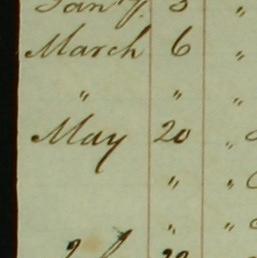 Jany. 3 "
March 6 "
" " "
May 20 "
" "
" "